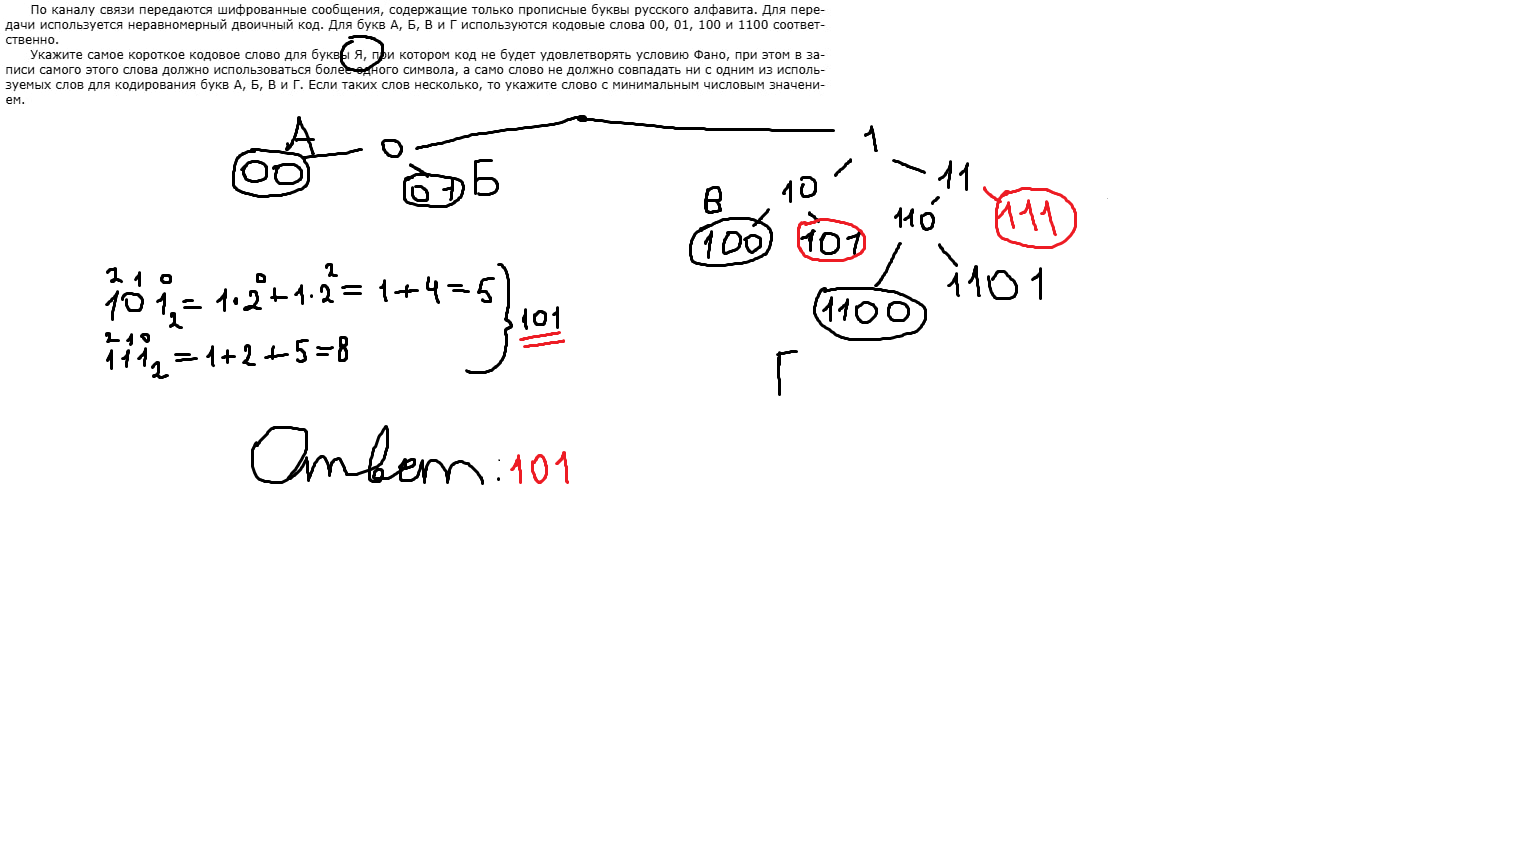 По каналу связи передаются шифрованные сообщения, содержащие только прописные буквы русского алфавита. Для пере-
дачи используется неравномерный двоичный код. Для букв А, Б, В и Г используются кодовые слова 00, 01, 100 и 1100 соответ-
ственно.
Укажите самое короткое кодовое слово для буквы Я, при котором код не будет удовлетворять условию Фано, при этом в за-
писи самого этого слова должно использоваться более одного символа, а само слово не должно совпадать ни с одним из исполь-
зуемых слов для кодирования букв А, Б, В и Г. Если таких слов несколько, то укажите слово с минимальным числовым значени-
ем.
А 0 1
00 01 Б 10 11
В 110 111
100 101
1100 1101
Г
2 1 0
101₂ = 1·2⁰ + 1·2² = 1 + 4 = 5
2 1 0
111₂ = 1 + 2 + 5 = 8
101
Ответ: 101